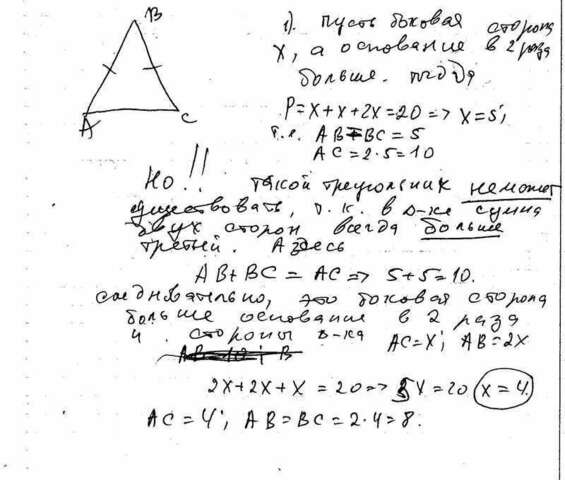 B
A
C
1). пусть боковая сторона
x, а основание в 2 раза
больше. тогда
P = x + x + 2x = 20 => x = 5,
т.е. AB = BC = 5
AC = 2·5 = 10
Но!! такой треугольник неможет
существовать, т.к. в Δ-ке сумма
двух сторон всегда больше
третьей. А здесь
AB + BC = AC => 5 + 5 = 10.
следовательно, это боковая сторона
больше основание в 2 раза
и стороны Δ-ка AC = x; AB = 2x
2x + 2x + x = 20 => 5x = 20 x = 4.
AC = 4; AB = BC = 2·4 = 8.